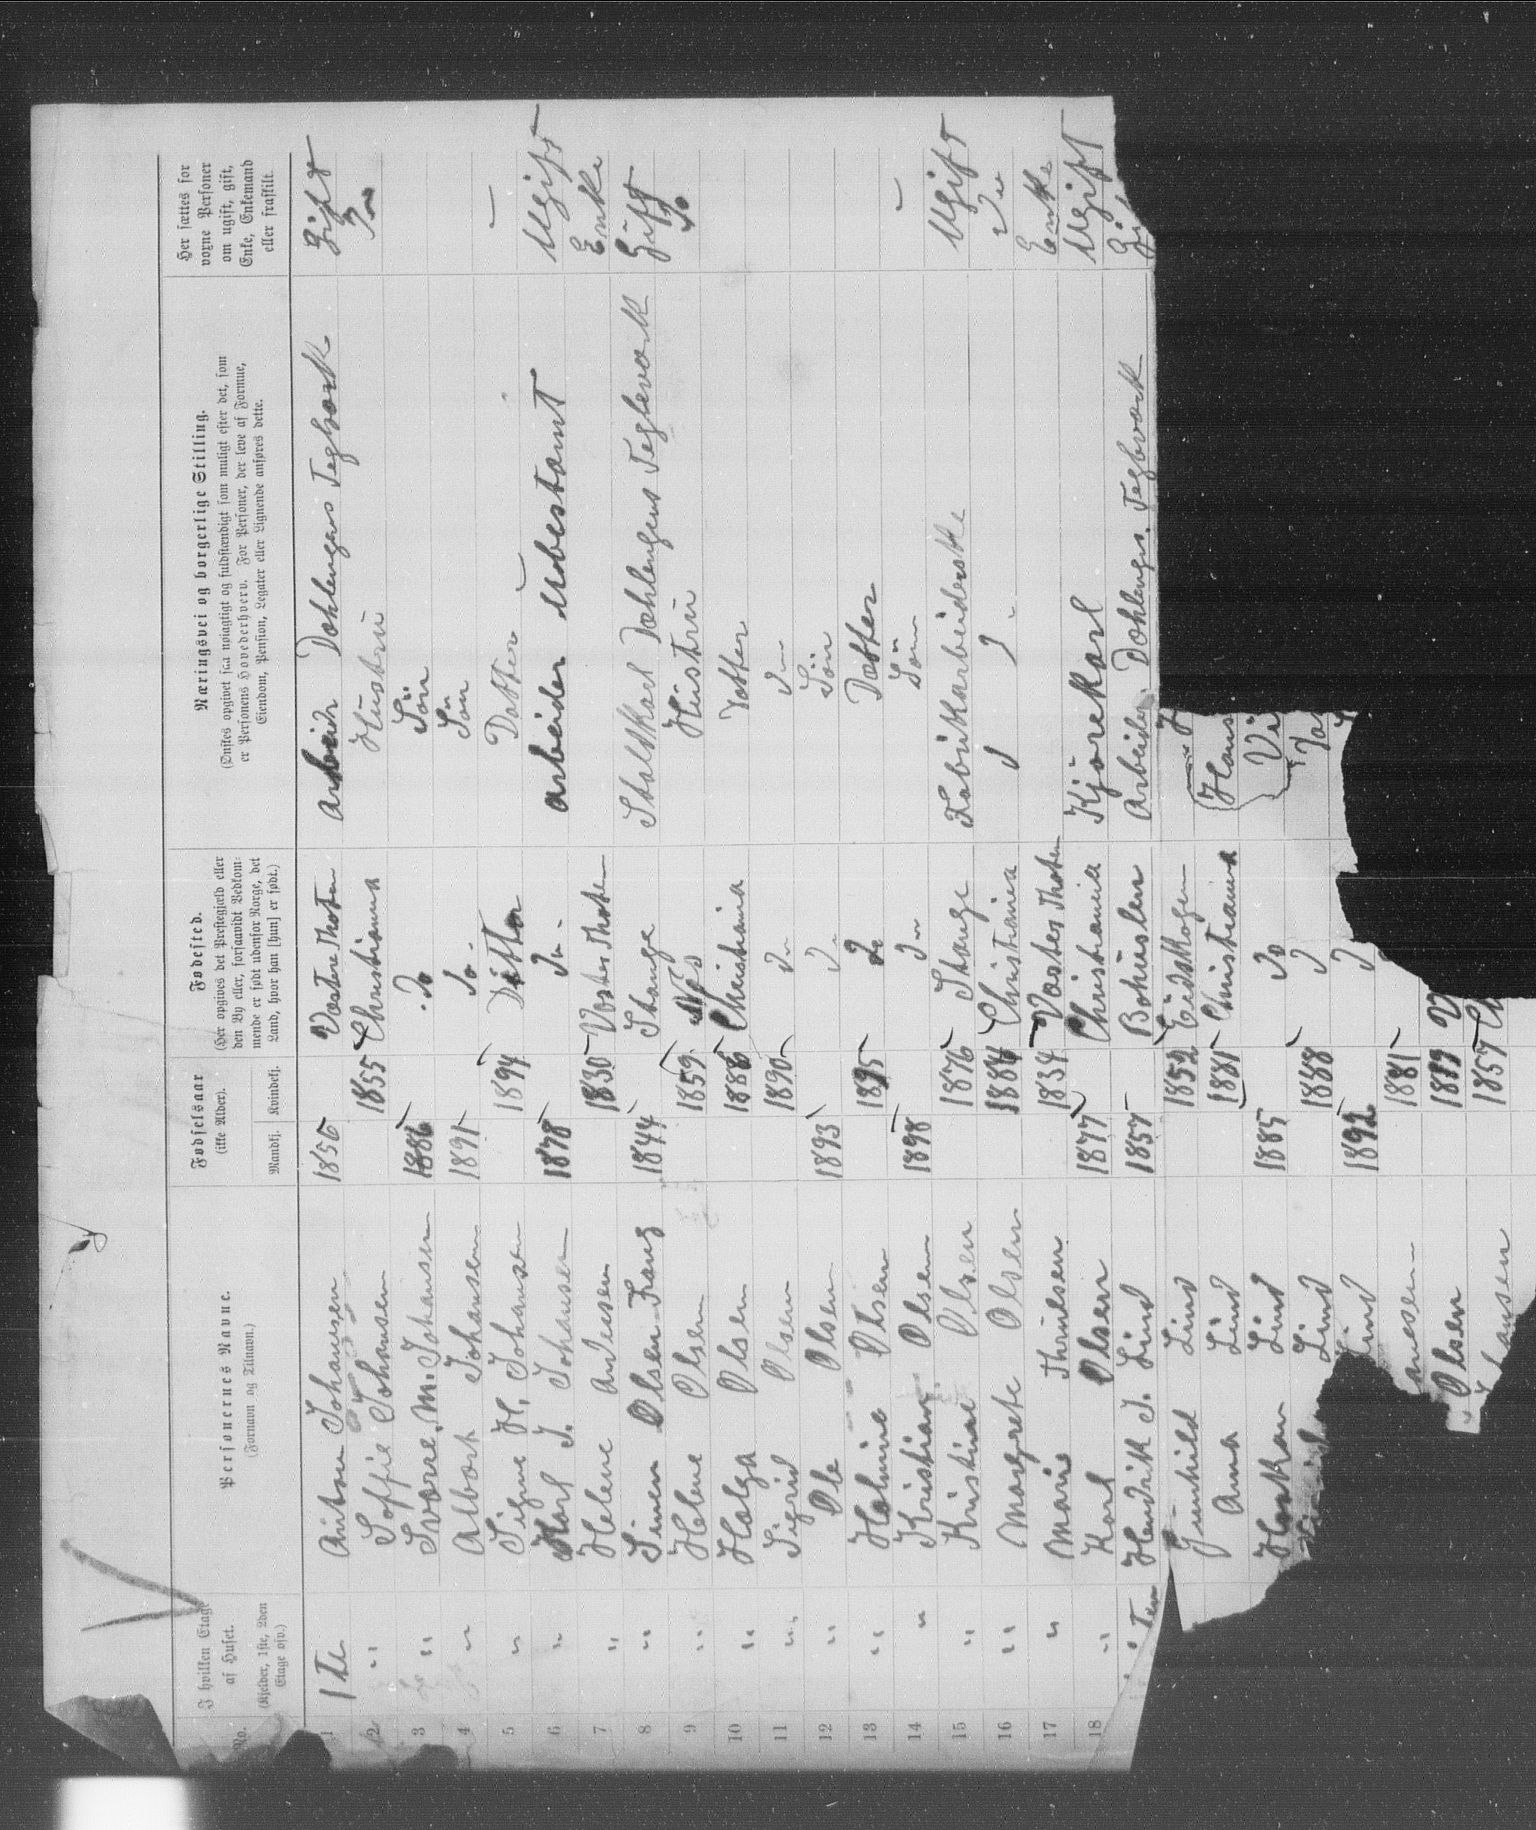 No.
I hvilken Etage af Huset.
(Kjelder, 1ste, 2den Etage osv.)
Personernes Navne.
(Fornavn og Tilnavn.)
Fødselsaar
(ikke Alder).
Mandkj.
Kvindekj.
Fødested.
(Her opgives det Prestegjæld eller
den By eller, forsaavidt Vedkom-
mende er født udenfor Norge, det
Land, hvor han [hun] er født.)
Næringsvei og borgerlige Stilling.
(Ønskes opgivet saa nøiagtigt og fuldstændigt som muligt efter det, som
er Personens Hovederhverv. For Personer, der leve af Formue,
Eiendom, Pension, Legater eller Lignende anføres dette.
Her sættes for
voxne Personer
om ugift, gift,
Enke, Enkemand
eller fraskilt.
1 1te Anton Johansen 1856 Vestre Thoten Arbeidr Dæhlengens Teglværk Gift
2 " Soffie Johansen 1855 Christiania Hustru Do
3 " Sverre. M. Johansen 1886 Do Sön
4 " Albert Johansen 1891 Do Sön
5 " Signe H. Johansen 1894 Datter —
6 " Karl J. Johansen 1878 Do arbeider Ugift
7 " Helene Andersen 1830 Vester Thoten Enke
8 " Simen Olsen 1844 Stange Staldkarl Dæhlengens Teglværk Gift
9 " Helene Olsen 1859 Næs Hustru Do
10 " Helga Olsen 1886 Christiania Datter
11 " Sigrid Olsen 1890 Do Do
12 " Ole Olsen 1893 Do Sön
13 " Helmine Olsen 1895 Do Datter
14 " Kristian Olsen 1898 Do Sön —
15 " Kristine Olsen 1876 Stange Fabrikarbeiderske Ugift
16 " Margrete Olsen 1884 Christiania Do
17 " Marie Thruelsen 1834 Vester Thoten Enke
18 " Karl Olsen 1877 Christiania Kjörekarl Ugift
Hendrik J. Lind 1857 Bohuslen Arbeider. Dæhlengs. Teglværk
Gunhild Lind 1852 Eidskogen
Anna Lind 1881 Christiania Hans
Haakon Lind 1885 Do
Lind 1888
Lind 1892
1881
Olsen
1857